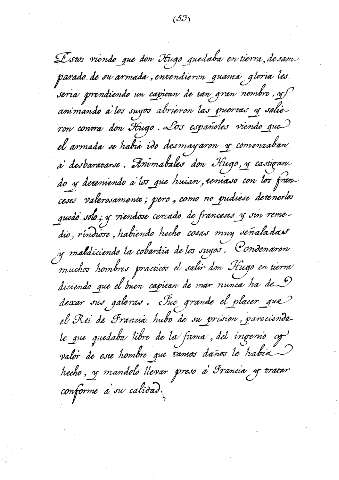 (53)
Estos viendo que don Hugo quedaba en tierra, desam
parado de su armada, entendieron quanta gloria les
seria prendiendo un capitan de tan gran nombre, y
animando á los suyos abrieron las puertas y salie
ron contra don Hugo. Los españoles viendo que
el armada se habia ido desmayaron y comenzaban
á desbaratarse. Animabales don Hugo, y castigan
do y deteniendo a los que huian, teniaso con los fran
ceses valerosamente; pero, como no pudiese detenerlos
quedó solo; y viendose cercado de franceses y sin reme
dio, rindiose, habiendo hecho cosas muy señaladas
y maldiciendo la cobardia de los suyos. Condenaron
muchos hombres practicos el salir don Hugo en tierra
diciendo que el buen capitan de mar nunca ha de
dexar sus galeras. Fue grande el placer que
el Rei de Francia hubo de su prision, pareciendo
le que quedaba libre de la furia, del ingenio y
valor de este hombre que tantos daños le habia
hecho, y mandolo llevar preso á Francia y tratar
conforme á su calidad.